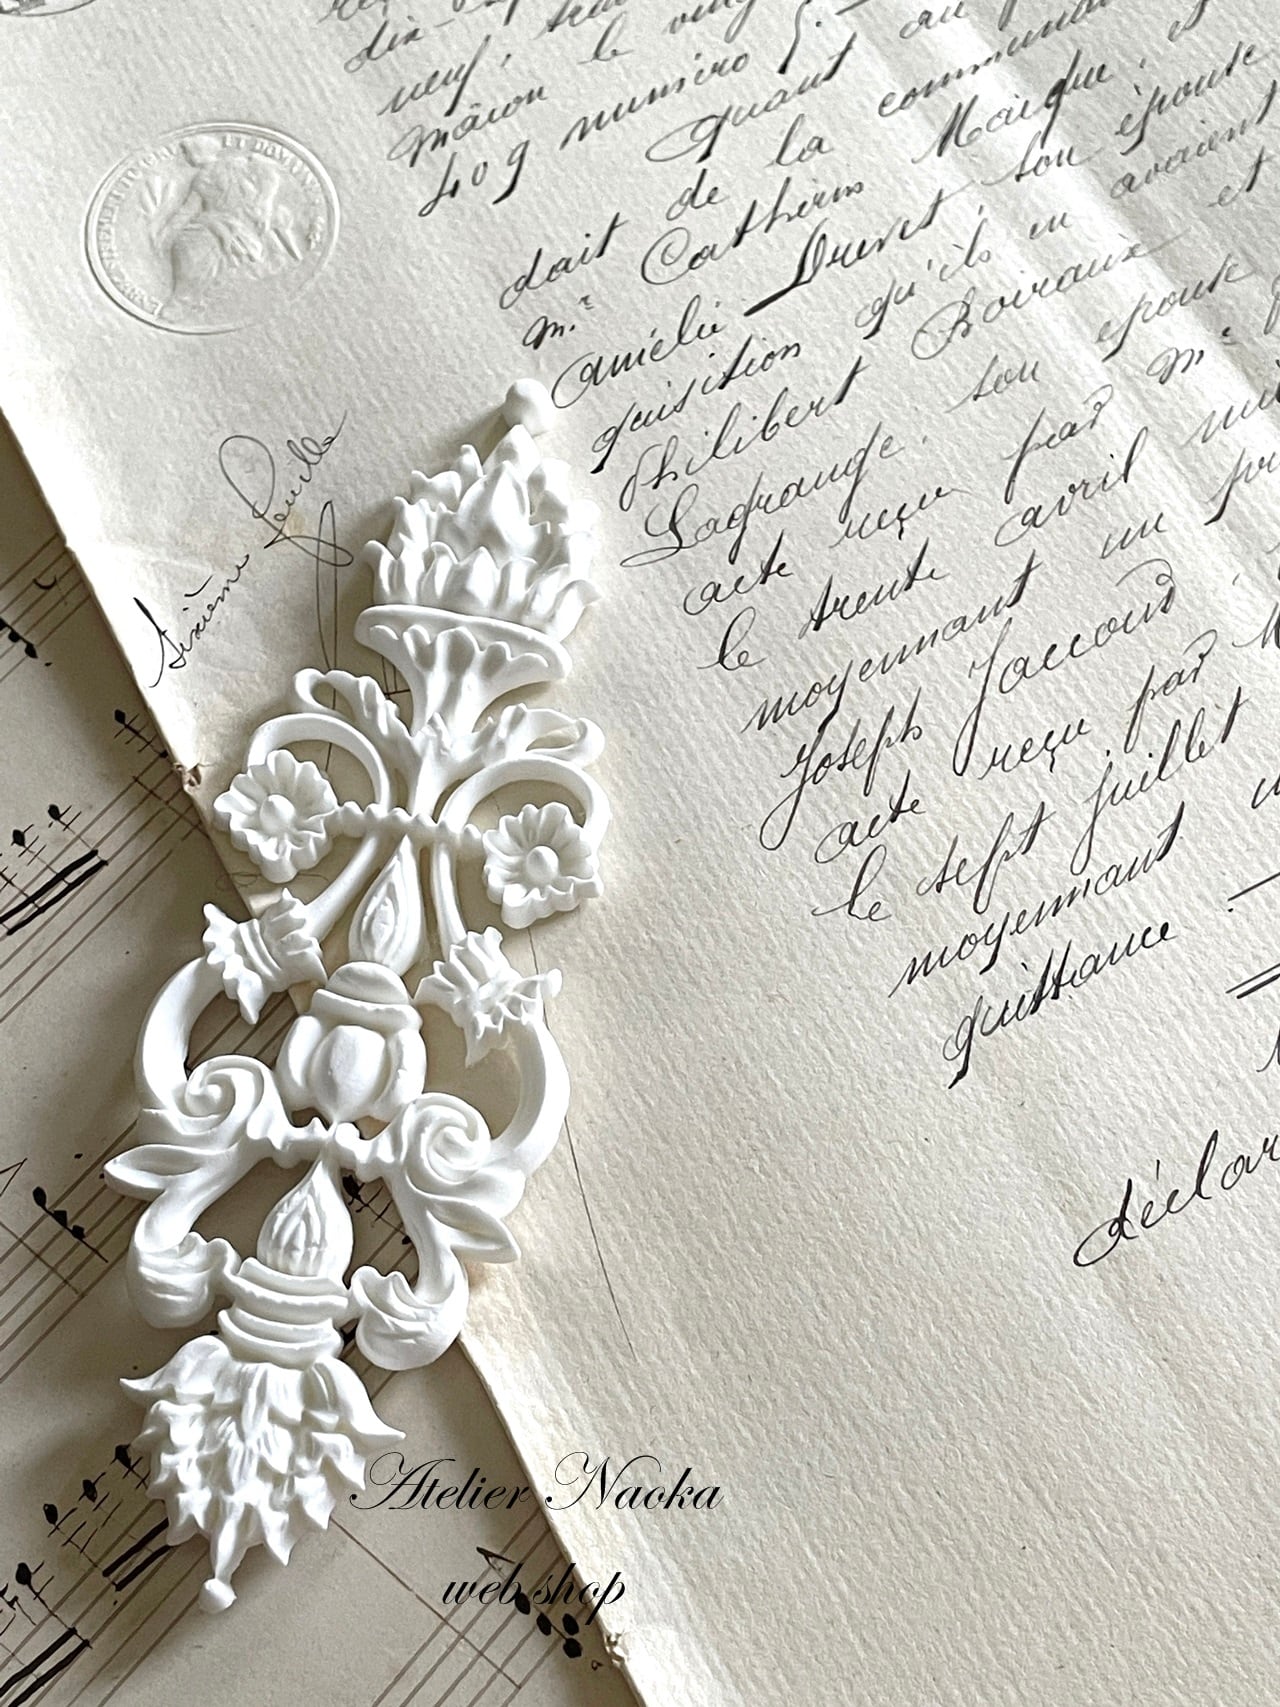 dix-
neuf,
Mâcon le vingt
409 numéro 5.
Quant au
dait de la communauté
Mr Catherin Maique, et
Amélie Drevet, son épouse
quisition qu'ils en avaient
Philibert Boiraux et
Lagrange, son épouse
acte reçu par Me
le trente avril mil
moyennant un pr
Joseph Jaccoud,
acte reçu par M
le sept juillet
moyennant u
quittance.
déclar
Sixième feuille
Atelier Naoka
web shop